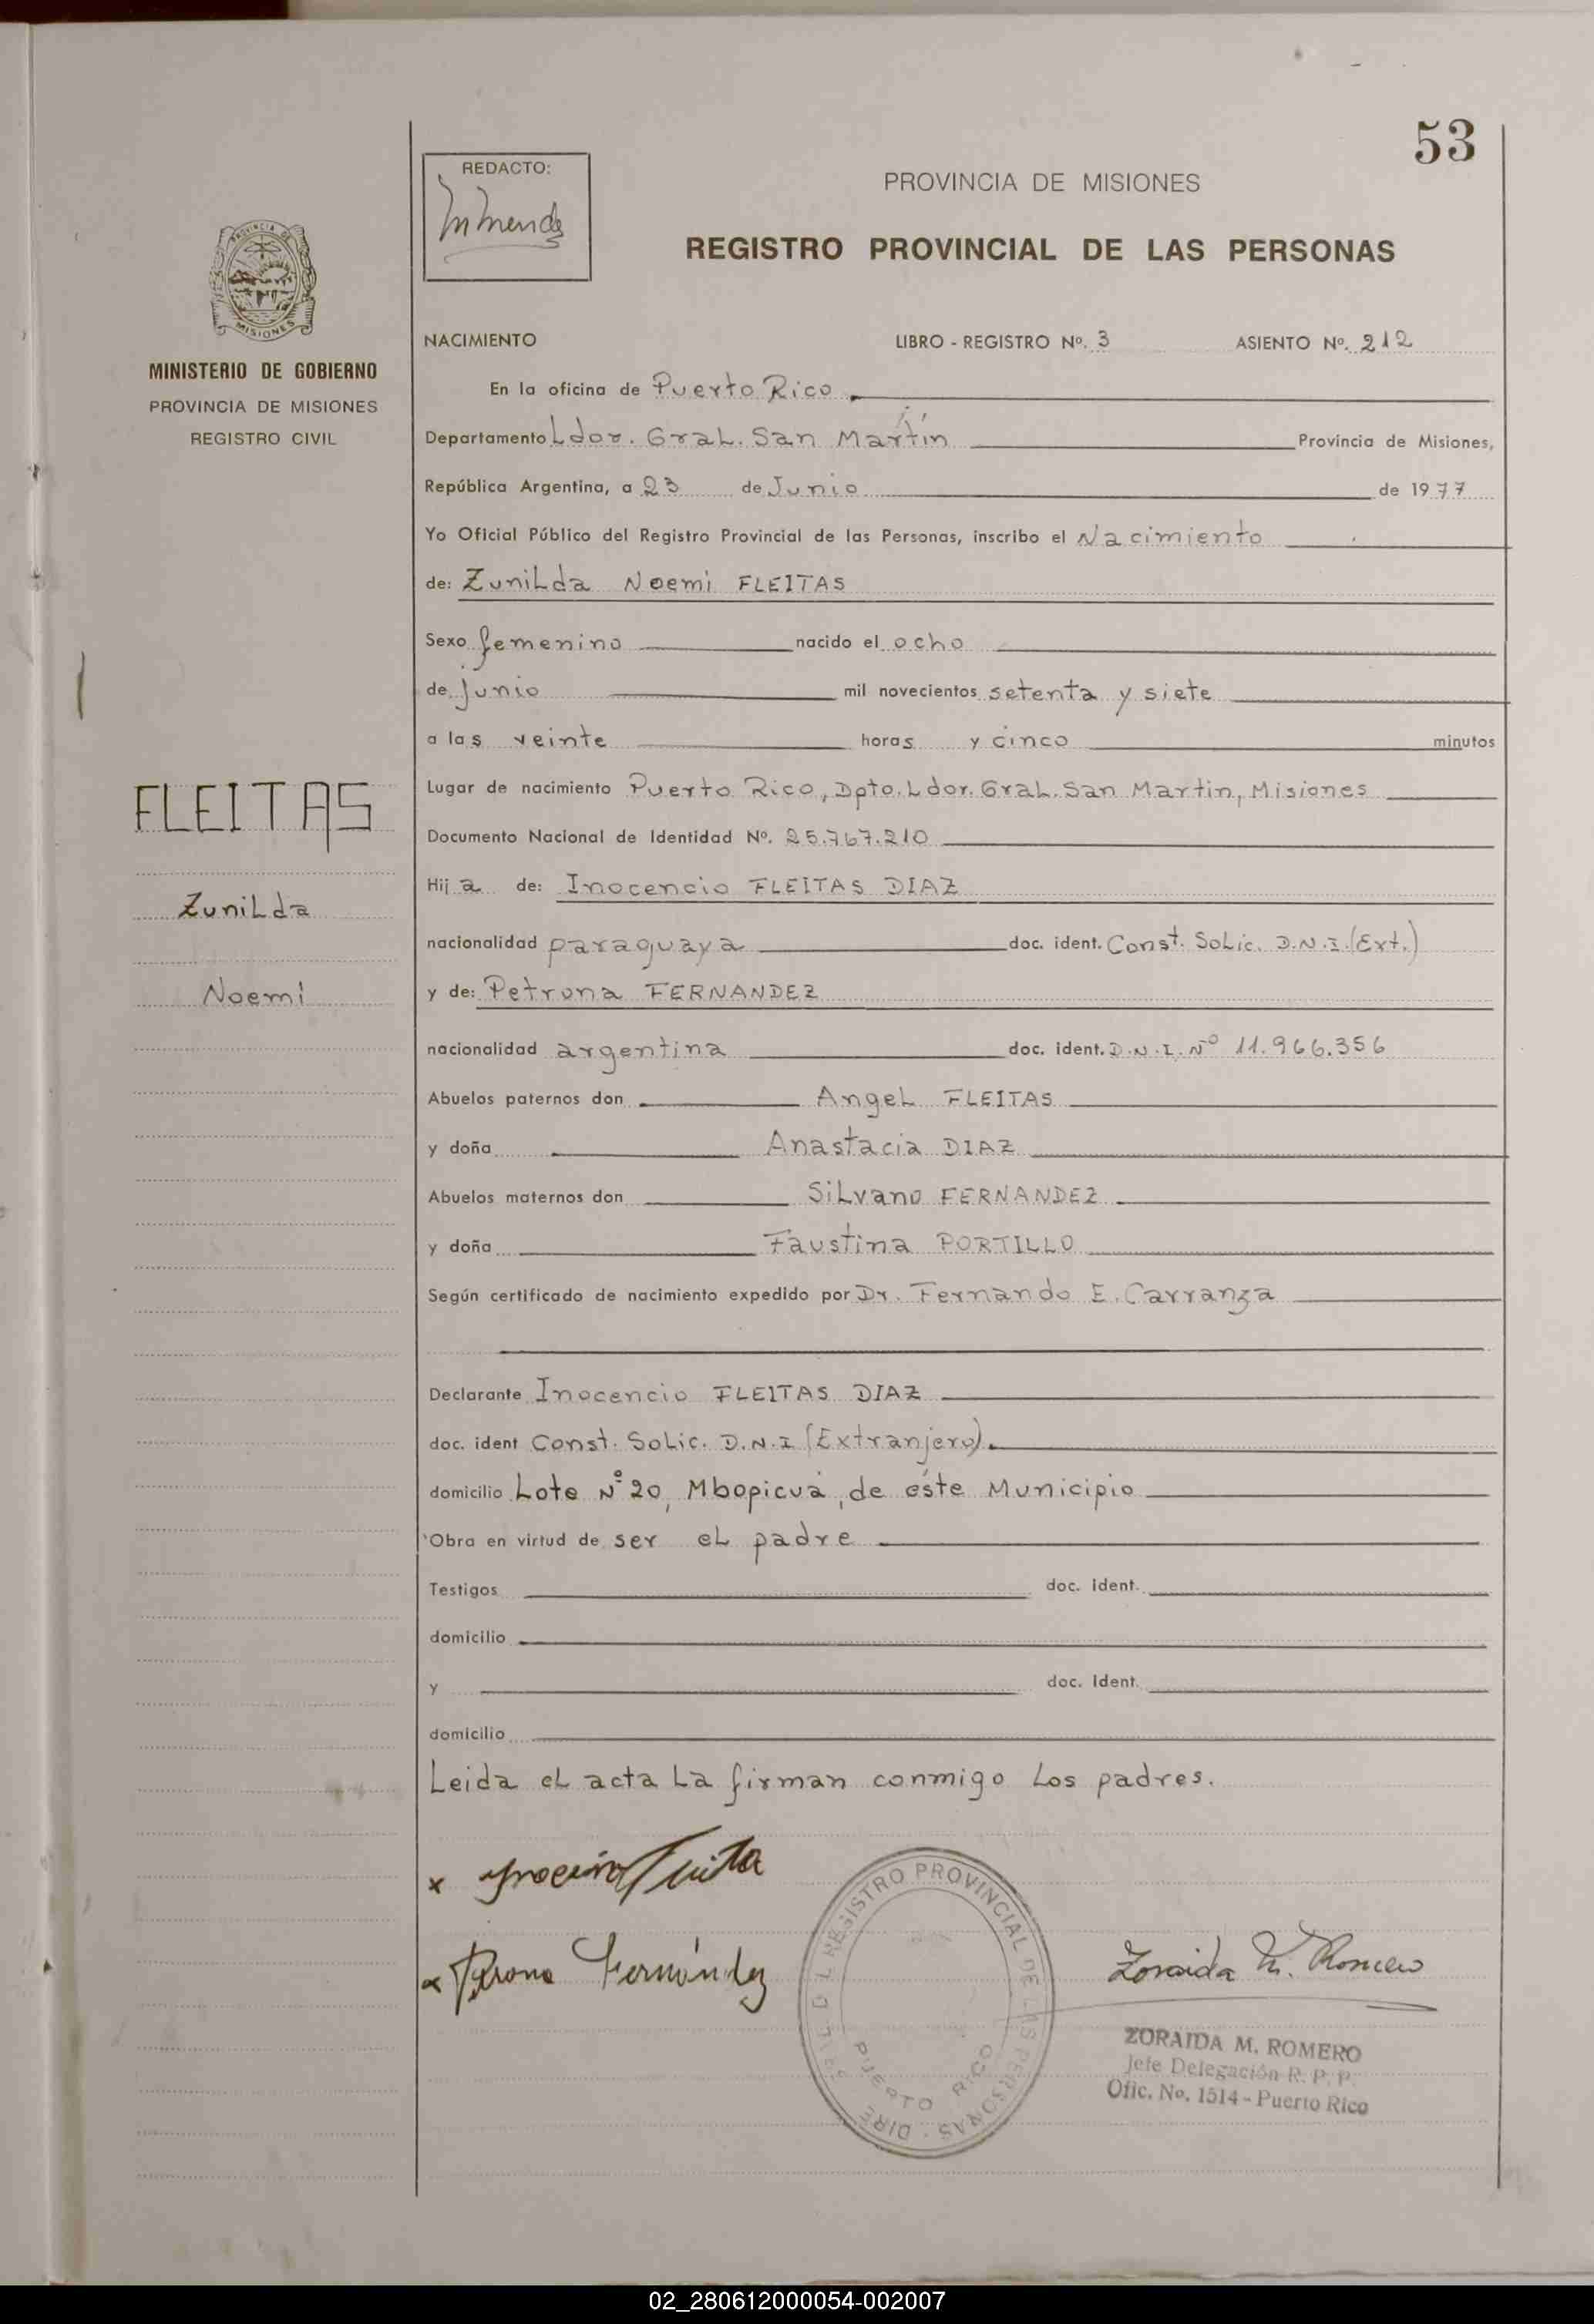 53
REDACTO:
PROVINCIA DE MISIONES
REGISTRO PROVINCIAL DE LAS PERSONAS
PROVINCIA DE
MISIONES
MINISTERIO DE GOBIERNO
PROVINCIA DE MISIONES
REGISTRO CIVIL
FLEITAS
Zunilda
Noemi
NACIMIENTO LIBRO - REGISTRO Nº. 3 ASIENTO Nº. 212
En la oficina de Puerto Rico
Departamento Ldor. Gral. San Martín Provincia de Misiones,
República Argentina, a 23 de Junio de 1977
Yo Oficial Público del Registro Provincial de las Personas, inscribo el Nacimiento
de: Zunilda Noemi FLEITAS
Sexo femenino nacido el ocho
de junio mil novecientos setenta y siete
a las veinte horas y cinco minutos
Lugar de nacimiento Puerto Rico, Dpto. Ldor. Gral. San Martin, Misiones
Documento Nacional de Identidad Nº. 25.767.210
Hija de: Inocencio FLEITAS DIAZ
nacionalidad paraguaya doc. ident. Const. Solic. D.N.I. (Ext.)
y de: Petrona FERNANDEZ
nacionalidad argentina doc. ident. D.N.I. Nº 11.966.356
Abuelos paternos don Angel FLEITAS
y doña Anastacia DIAZ
Abuelos maternos don Silvano FERNANDEZ
y doña Faustina PORTILLO
Según certificado de nacimiento expedido por Dr. Fernando E. Carranza
Declarante Inocencio FLEITAS DIAZ
doc. ident Const. Solic. D.N.I (Extranjero).
domicilio Lote Nº 20, Mbopicuá, de éste Municipio
Obra en virtud de ser el padre
Testigos doc. ident.
domicilio
y doc. ident.
domicilio
Leida el acta la firman conmigo los padres.
x
x Petrona Fernández
REGISTRO PROVINCIAL DE LAS PERSONAS
PUERTO RICO
Zoraida M. Romero
ZORAIDA M. ROMERO
Jefe Delegación R. P. P.
Ofic. No. 1514 - Puerto Rico
02_280612000054-002007